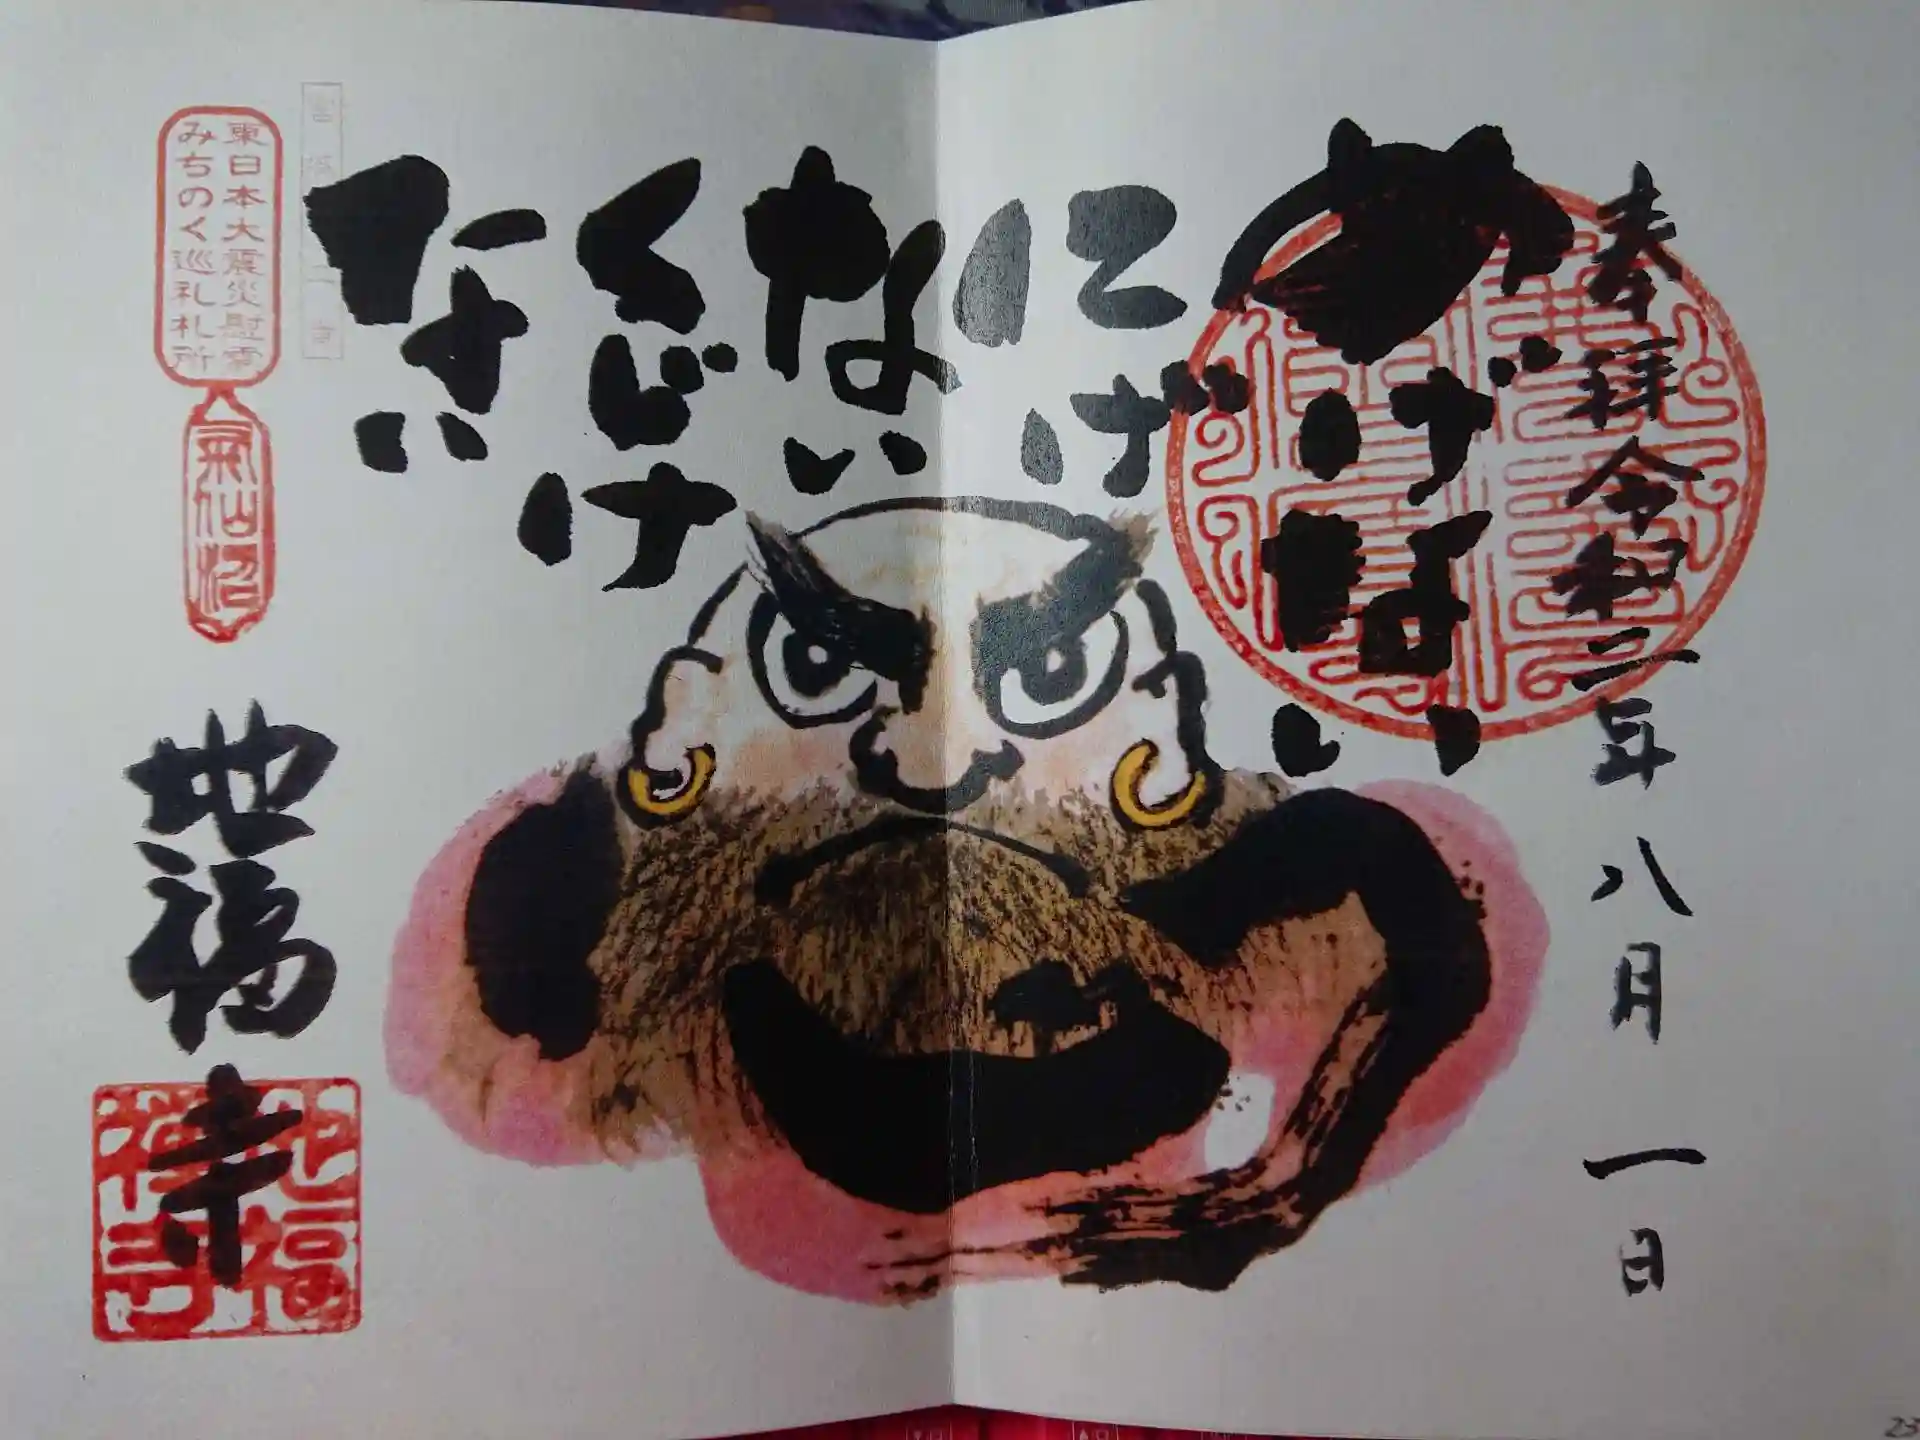 奉拝 令和二年八月一日
めげない
にげ
ない
くじけ
ない
東日本大震災慰霊
みちのく巡礼札所
氣仙沼
地福寺
地福
禅寺